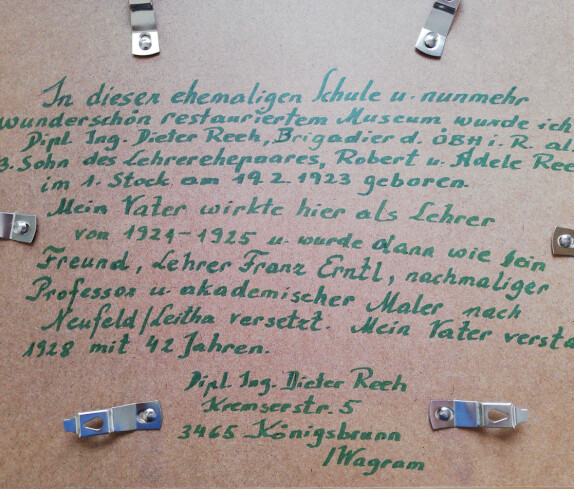 In dieser ehemaligen Schule u. nunmehr
wunderschön restauriertem Museum wurde ich
Dipl. Ing. Dieter Reeh, Brigadier d. ÖBH i. R. al
3. Sohn des Lehrerehepaares, Robert u. Adele Ree
im 1. Stock am 19.2.1923 geboren.
Mein Vater wirkte hier als Lehrer
von 1924-1925 u. wurde dann wie sein
Freund, Lehrer Franz Erntl, nachmaliger
Professor u. akademischer Maler nach
Neufeld/Leitha versetzt. Mein Vater versta
1928 mit 42 Jahren.
Dipl. Ing. Dieter Reeh
Kremserstr. 5
3465 Königsbrunn
/Wagram